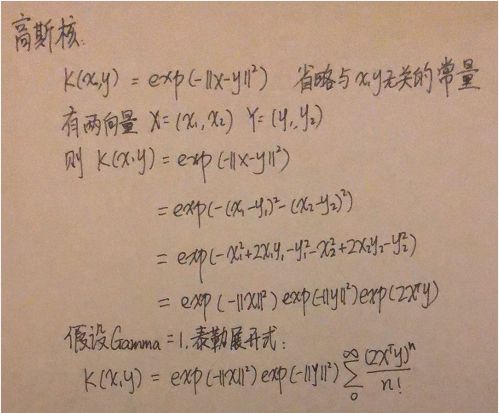 高斯核:
K(x,y) = exp(-||x-y||²) 省略与x,y无关的常量
有两向量 X=(x₁,x₂) Y=(y₁,y₂)
则 K(x,y) = exp(-||x-y||²)
= exp(-(x₁-y₁)²-(x₂-y₂)²)
= exp(-x₁²+2x₁y₁-y₁²-x₂²+2x₂y₂-y₂²)
= exp(-||x||²) exp(-||y||²) exp(2xᵀy)
假设Gamma=1,泰勒展开式:
K(x,y) = exp(-||x||²) exp(-||y||²) ∑₀^∞ (2xᵀy)ⁿ/n!